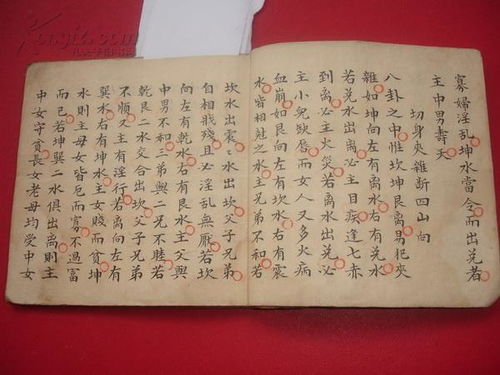 寡婦淫乱坤水當令而出兑者
主中男壽夭
切身夾雜斷四山向
八卦之中惟坎坤艮离易犯夾
雜如坤向左有离水右有兑水
若兑水出离必主目疾逢七赤
到离必主火災若离水出兑必
主小兒殃唇而女人又多火病
血崩如艮向左有坎水右有震
水皆相尅之水主兄弟不和若
坎水出震震水出坎父子兄弟
自相戕殘且必淫乱無厭若坎
向左有乾水右有艮水主父與
中男不和三弟與二兄不睦若
乾艮二水交合出坎父子兄弟
不順又主有淫行若离向左有
巽水右有坤水主女賤而貧坤
水則主母女皆厄而寡不過富
而已若坤巽二水俱出离則主
中女守貧長女老母均受中女